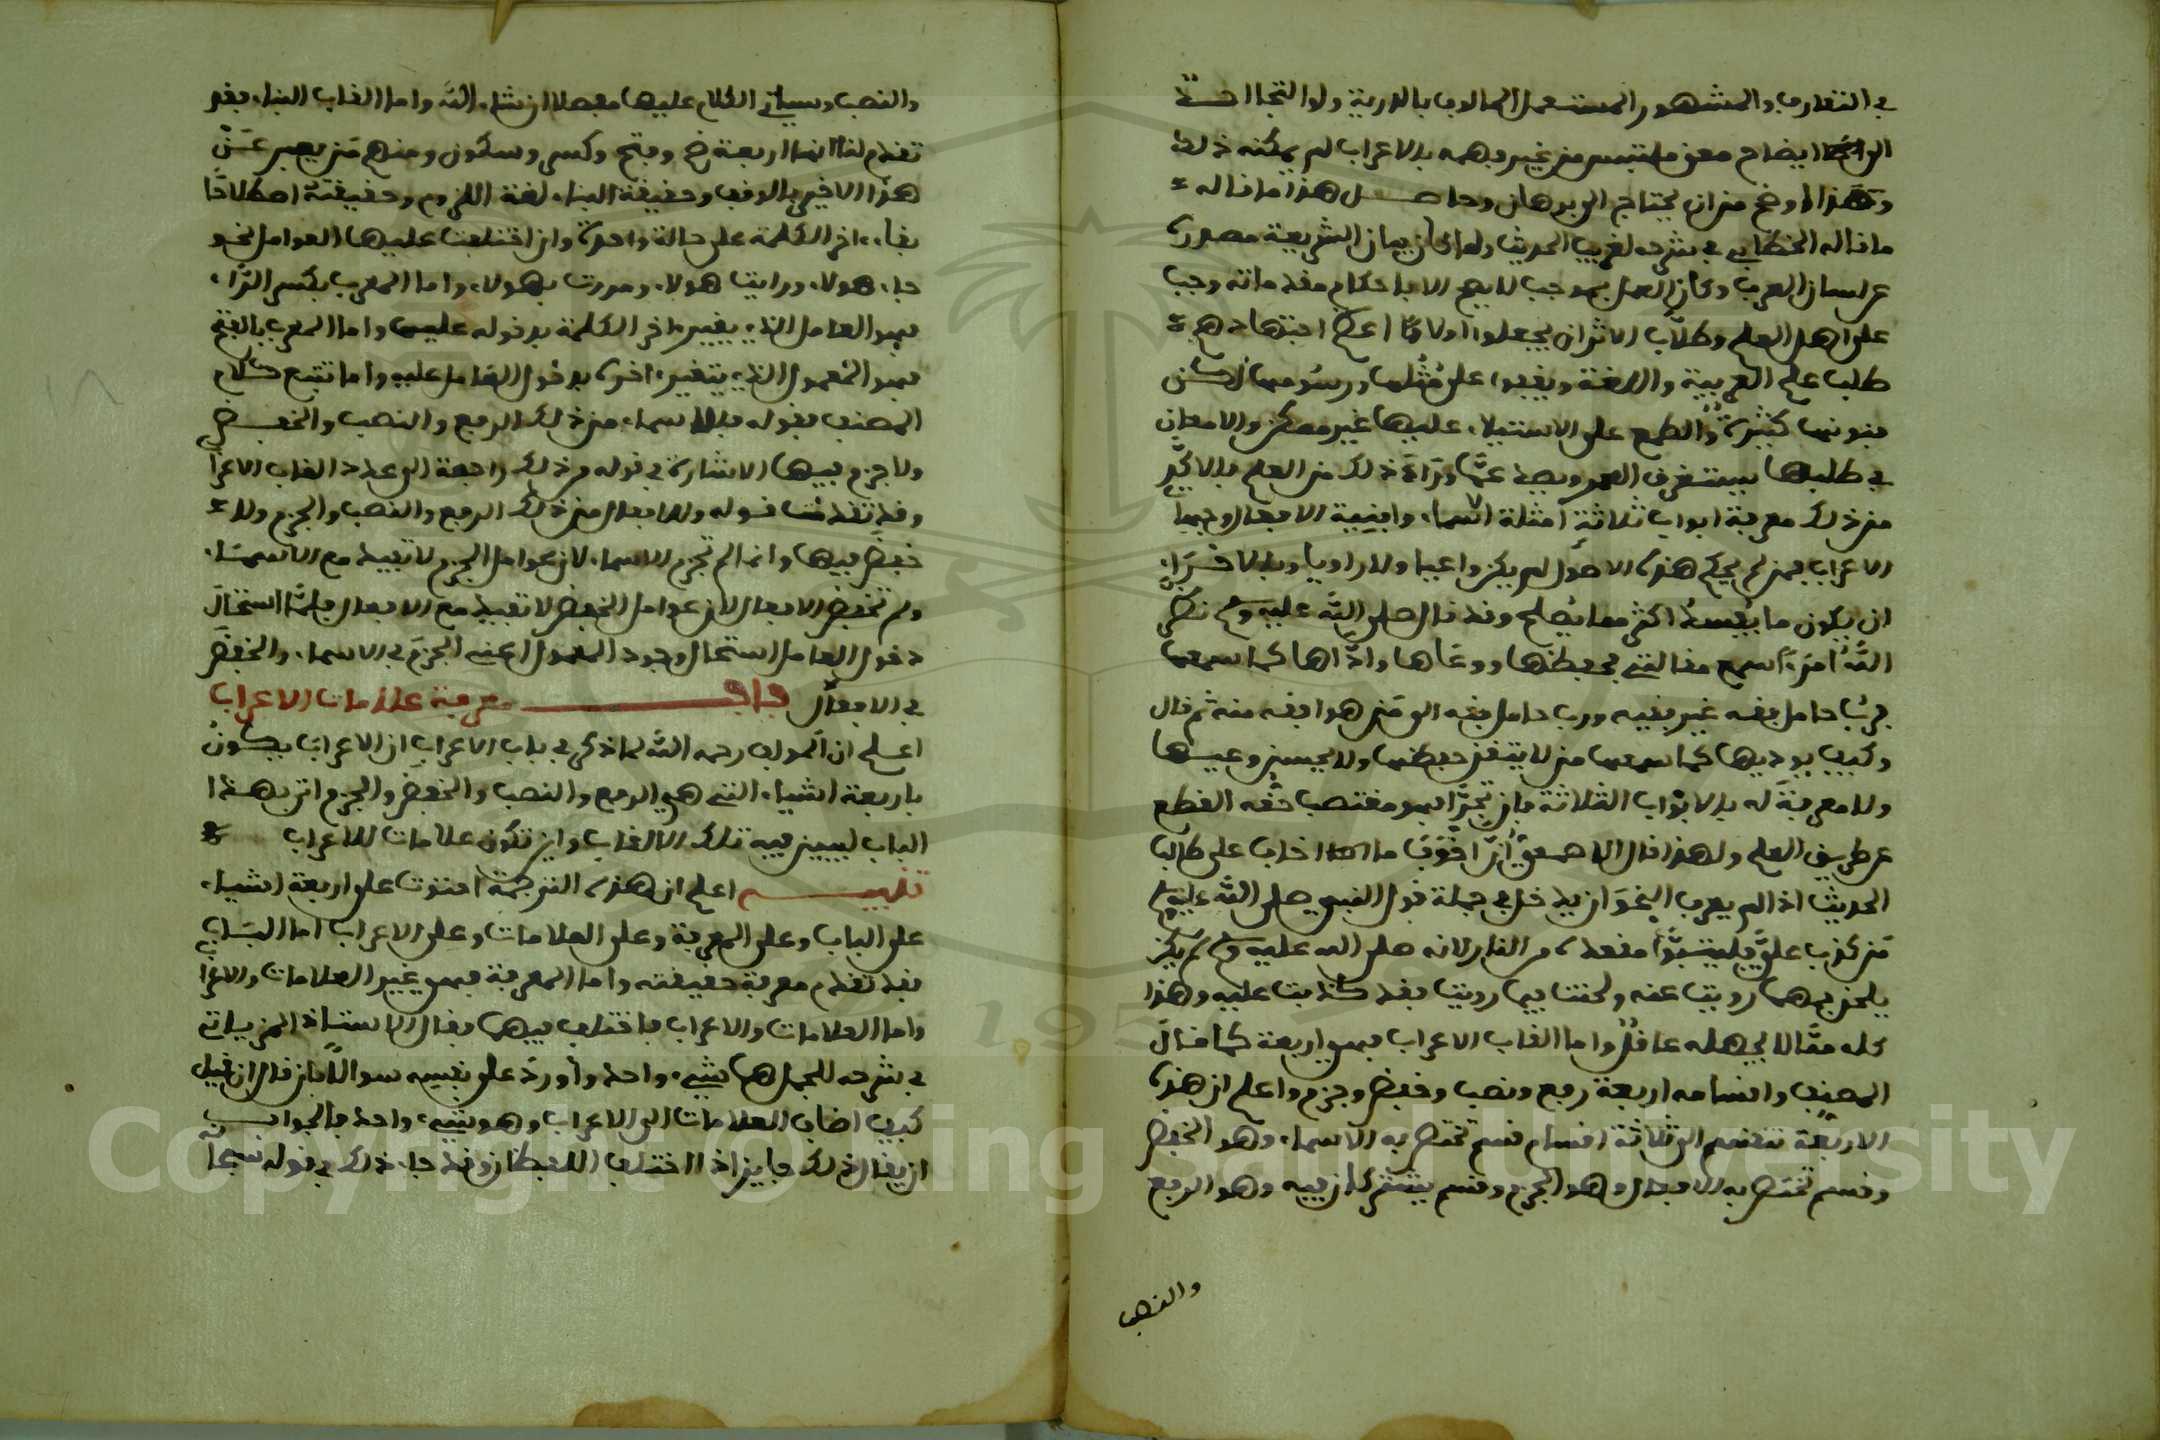 في التعارف والمشهور المستعمل المالوف بالدربة ولو التجا احد
الى ايضاح معنى ملتبس من غير فهمه بالاعراب لم يمكنه ذلك
وهذا اوضح من ان يحتاج الى برهان وحاصل هذا ما قاله
ما قاله الخطابي في شرحه لغريب الحديث ولما كان بيان الشريعة مصدره
عن لسان العرب وكان العمل بموجب لا يصح الا باحكام مقدماته وجب
على اهل العلم وطلاب الاثر ان يجعلوا اولا اعظم اجتهادهم
طلب علم العربية واللغة ويقفوا على مثلها ورسومها لاكن
فنونها كثيرة والطمع على الاستيلاء عليها غير ممكن والامعان
في طلبها يستغرق العمر ويصد عما وراء ذلك من العلم بالاكيد
من ذلك معرفة ابواب ثلاثة امثلة الاسماء وابنية الافعال وجهات
الاعراب فمن لم يحكم هذه الاصول لم يكن واعيا ولا راويا وبالاحرا
ان يكون ما يفسده اكثر مما يصلح وقد قال صلى الله عليه وسلم نضر
الله امرءا سمع مقالتي فحفظها ووعاها واداها كما سمعها
فرب حامل فقه غير فقيه ورب حامل فقه الى من هو افقه منه ثم قال
وكيف يوديها كما سمعها من لا يتقن حفظها ولا يحسن وعيها
ولا معرفة له بالابواب الثلاثة فان تجرا فهو مغتصب حقه القطع
عن طريق العلم ولهذا قال الاصمعي ان اخوف ما اخاف على طالب
الحديث اذا لم يعرف النحو ان يدخل في جملة قول النبي صلى الله عليه وسلم
من كذب علي فليتبوا مقعده من النار لانه صلى الله عليه وسلم لم يكن
يلحن فمهما رويت عنه ولحنت فيما رويت فقد كذبت عليه وهذا
كله مما لا يجهله عاقل واما القاب الاعراب فهي اربعة كما قال
المصنف واقسامه اربعة رفع ونصب وخفض وجزم واعلم ان هذه
الاربعة تنقسم الى ثلاثة اقسام قسم تختص به الاسماء وهو الخفض
وقسم تختص به الافعال وهو الجزم وقسم يشتركان فيه وهو الرفع
والنصب
والنصب وسياتي الكلام عليها مفصلا ان شاء الله واما القاب البناء فقد
تقدم لنا انها اربعة ضم وفتح وكسر وسكون ومنهم من يعبر عن
هذا الاخير بالوقف وحقيقة البناء لغة اللزوم وحقيقته اصطلاحا
بقاء اخر الكلمة على حالة واحدة وان اختلفت عليها العوامل نحو
جاء هولاء ورايت هولاء ومررت بهولاء واما المعرب بكسر الراء
فهو العامل الذي يغير اخر الكلمة بدخوله عليها واما المعرب بالفتح
فهو المعمول الذي يتغير اخره بدخول العامل عليه واما تتبع كلام
المصنف فقوله فللاسماء من ذلك الرفع والنصب والخفض
ولا جزم فيها الاشارة في قوله من ذلك راجعة الى عدد القاب الاعراب
وقد تقدمت قوله وللافعال من ذلك الرفع والنصب والجزم ولا
خفض فيها وانما لم تجزم الاسماء لان عوامل الجزم لا تفيد مع الاسماء
ولم تخفض الافعال لان عوامل الخفض لا تفيد مع الافعال فلما استحال
دخول العامل استحال وجود المعمول اعني الجزم في الاسماء والخفض
في الافعال باب معرفة علامات الاعراب
اعلم ان المولف رحمه الله لما ذكر في باب الاعراب ان الاعراب يكون
باربعة اشياء التي هي الرفع والنصب والخفض والجزم اتى بهذا
الباب ليبين فيه تلك الالقاب واين تكون علامات للاعراب
تنبيه اعلم ان هذه الترجمة احتوت على اربعة اشياء
على الباب وعلى المعرفة وعلى العلامات وعلى الاعراب اما الباب
فقد تقدم معرفة حقيقته واما المعرفة فهي غير العلامات والاعراب
واما العلامات والاعراب فاختلف فيهما فقال الاستاذ المزياتي
في شرحه للجمل هما شيء واحد واورد على نفسه سوالا بان قال ان قيل
كيف اضاف العلامات الى الاعراب وهو شيء واحد فالجواب
ان يقال ذلك جايز اذا اختلف اللفظان وقد جاء ذلك في قوله سبحانه